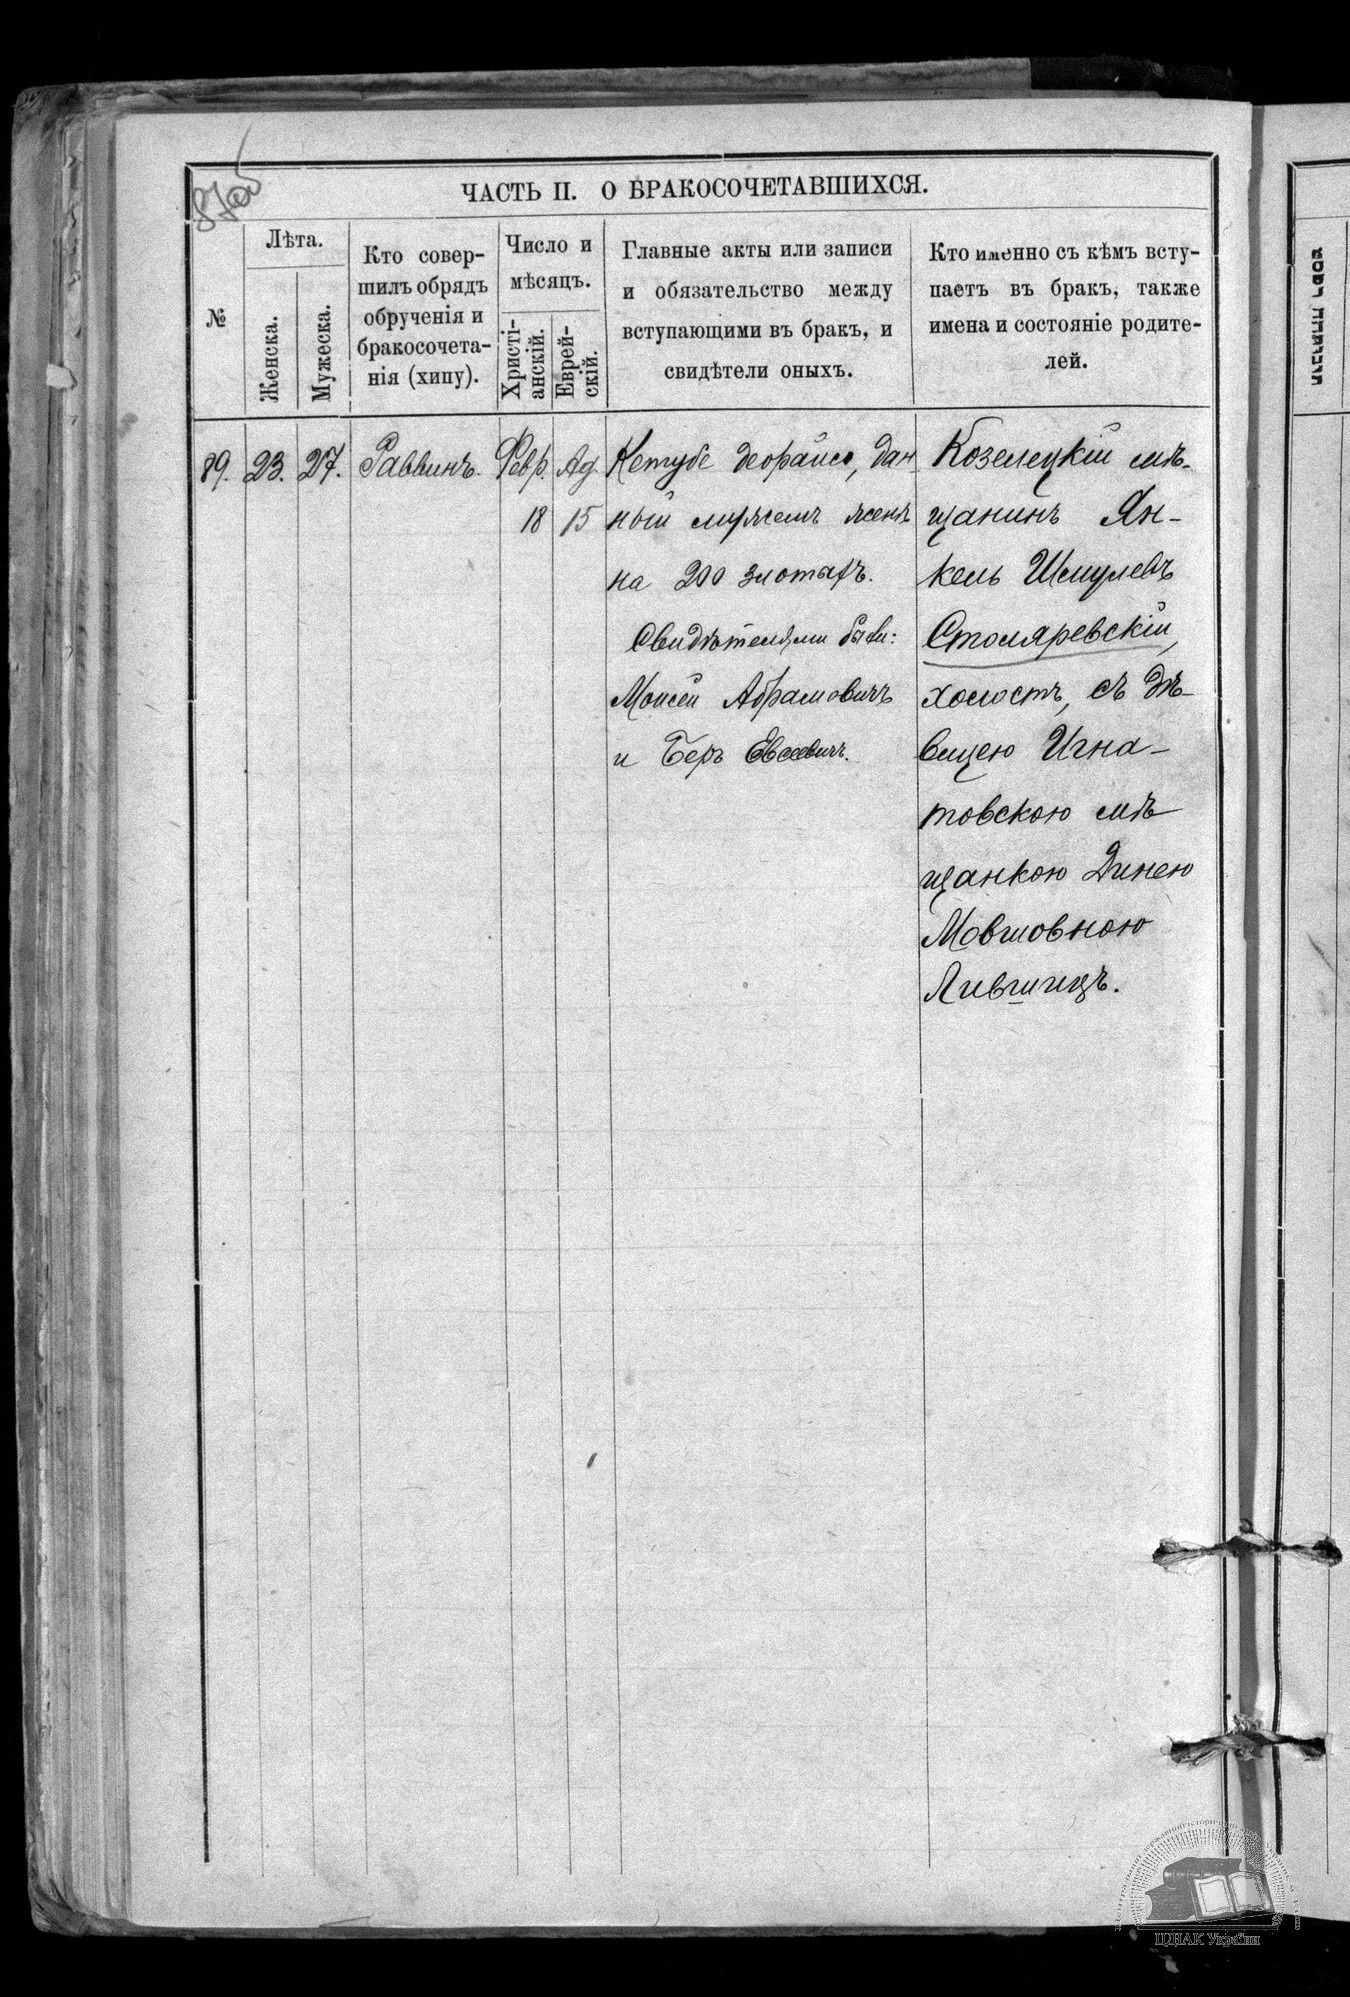 87об
ЧАСТЬ II. О БРАКОСОЧЕТАВШИХСЯ.
№
Лѣта.
Женска.
Мужеска.
Кто совер-
шилъ обрядъ
обрученія и
бракосочета-
нія (хипу).
Число и
мѣсяцъ.
Христі-
анскій.
Еврей-
скій.
Главные акты или записи
и обязательство между
вступающими въ бракъ, и
свидѣтели оныхъ.
Кто именно съ кѣмъ всту-
паетъ въ бракъ, также
имена и состояніе родите-
лей.
89.
23.
27.
Раввинъ.
Февр.
18
Ад.
15
Кетубе деорайсо, дан
ный мужемъ женѣ
на 200 злотыхъ.
Свидѣтелями были:
Моисей Абрамовичъ
и Беръ Евсеевичъ.
Козелецкій мѣ-
щанинъ Ян-
кель Шмулевъ
Столяревскій,
холостъ, съ дѣ-
вицею Игна-
товскою мѣ
щанкою Динею
Мовшовною
Лившицъ.
ЦДІАК України